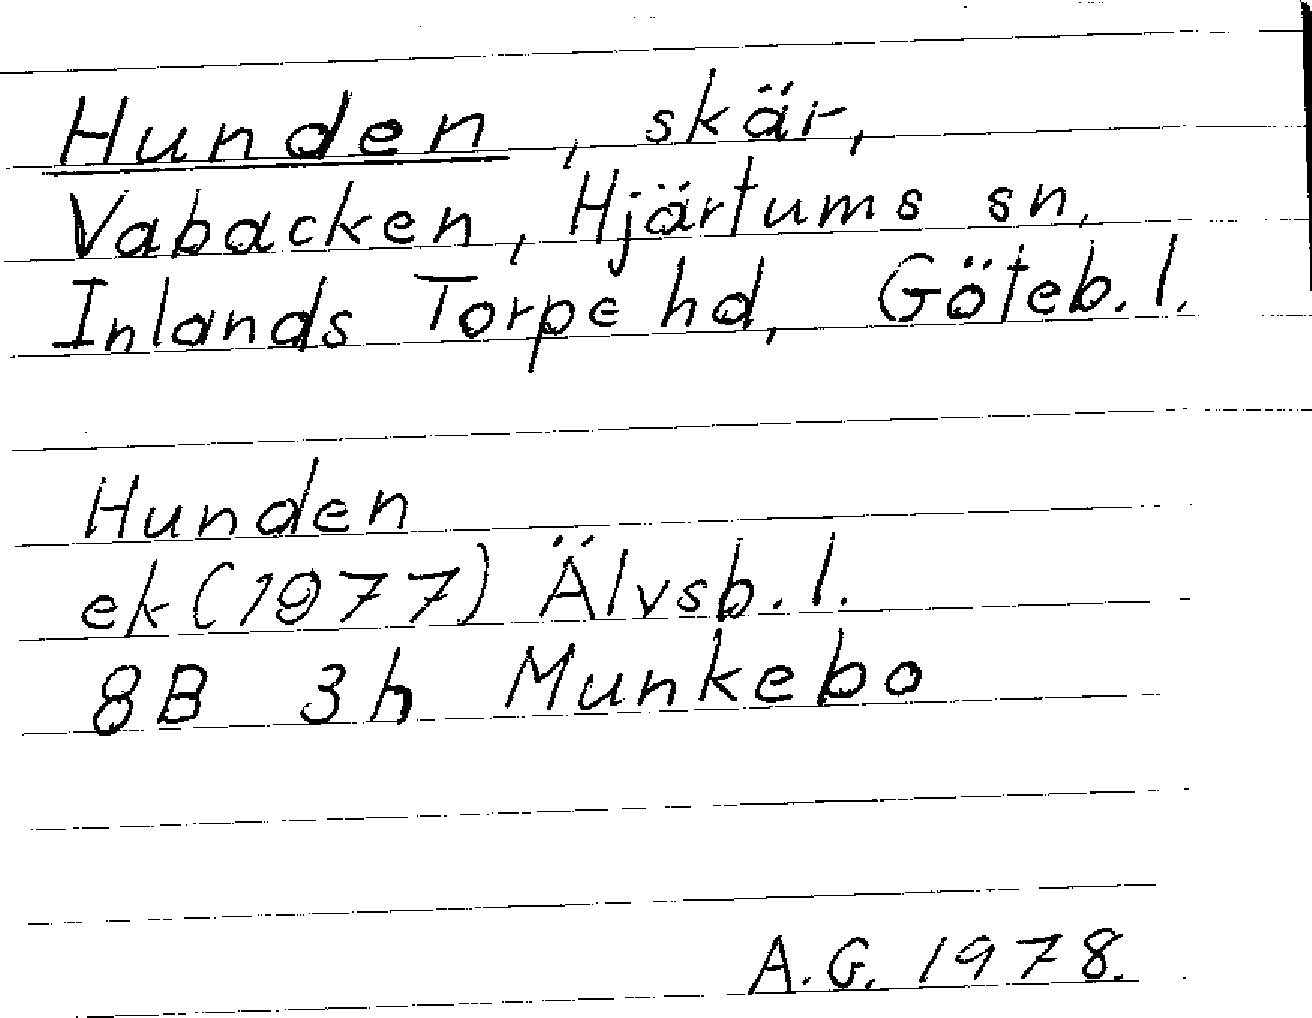 Hunden, skär,
Vabacken, Hjärtums sn,
Inlands Torpe hd, Göteb. l.
Hunden
ek (1977) Älvsb. l.
8B 3h Munkebo
A.G. 1978.